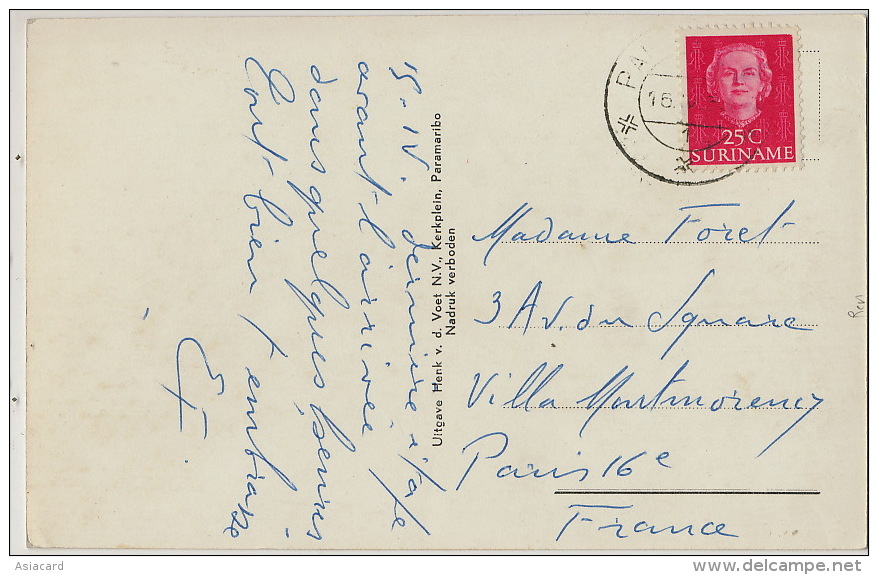 15-IV. dernière étape
avant l'arrivée
dans quelques heures
Tout bien, t'embrasse
Uitgave Henk v. d. Voet N.V., Kerkplein, Paramaribo
Nadruk verboden
PA
16.
1
25 C
SURINAME
Madame Foret
3 Av. du Square
Villa Montmorency
Paris 16e
France
Asiacard
www.delcampe.net